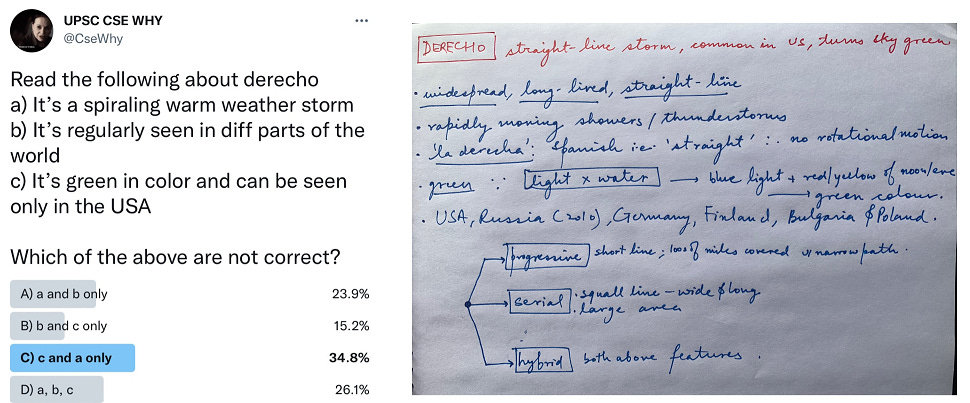 UPSC CSE WHY
@CseWhy
Read the following about derecho
a) It's a spiraling warm weather storm
b) It's regularly seen in diff parts of the
world
c) It's green in color and can be seen
only in the USA
Which of the above are not correct?
A) a and b only 23.9%
B) b and c only 15.2%
C) c and a only 34.8%
D) a, b, c 26.1%
DERECHO straight-line storm, common in US, turns sky green
• widespread, long-lived, straight-line
• rapidly moving showers / thunderstorms
• 'la derecha': Spanish i.e. 'straight' ∴ no rotational motion
• green ∵ light x water → blue light + red/yellow of noon/eve
→ green colour.
• USA, Russia (2010), Germany, Finland, Bulgaria & Poland.
progressive short line; 100s of miles covered narrow path.
serial • squall line – wide & long
• large area
hybrid both above features.